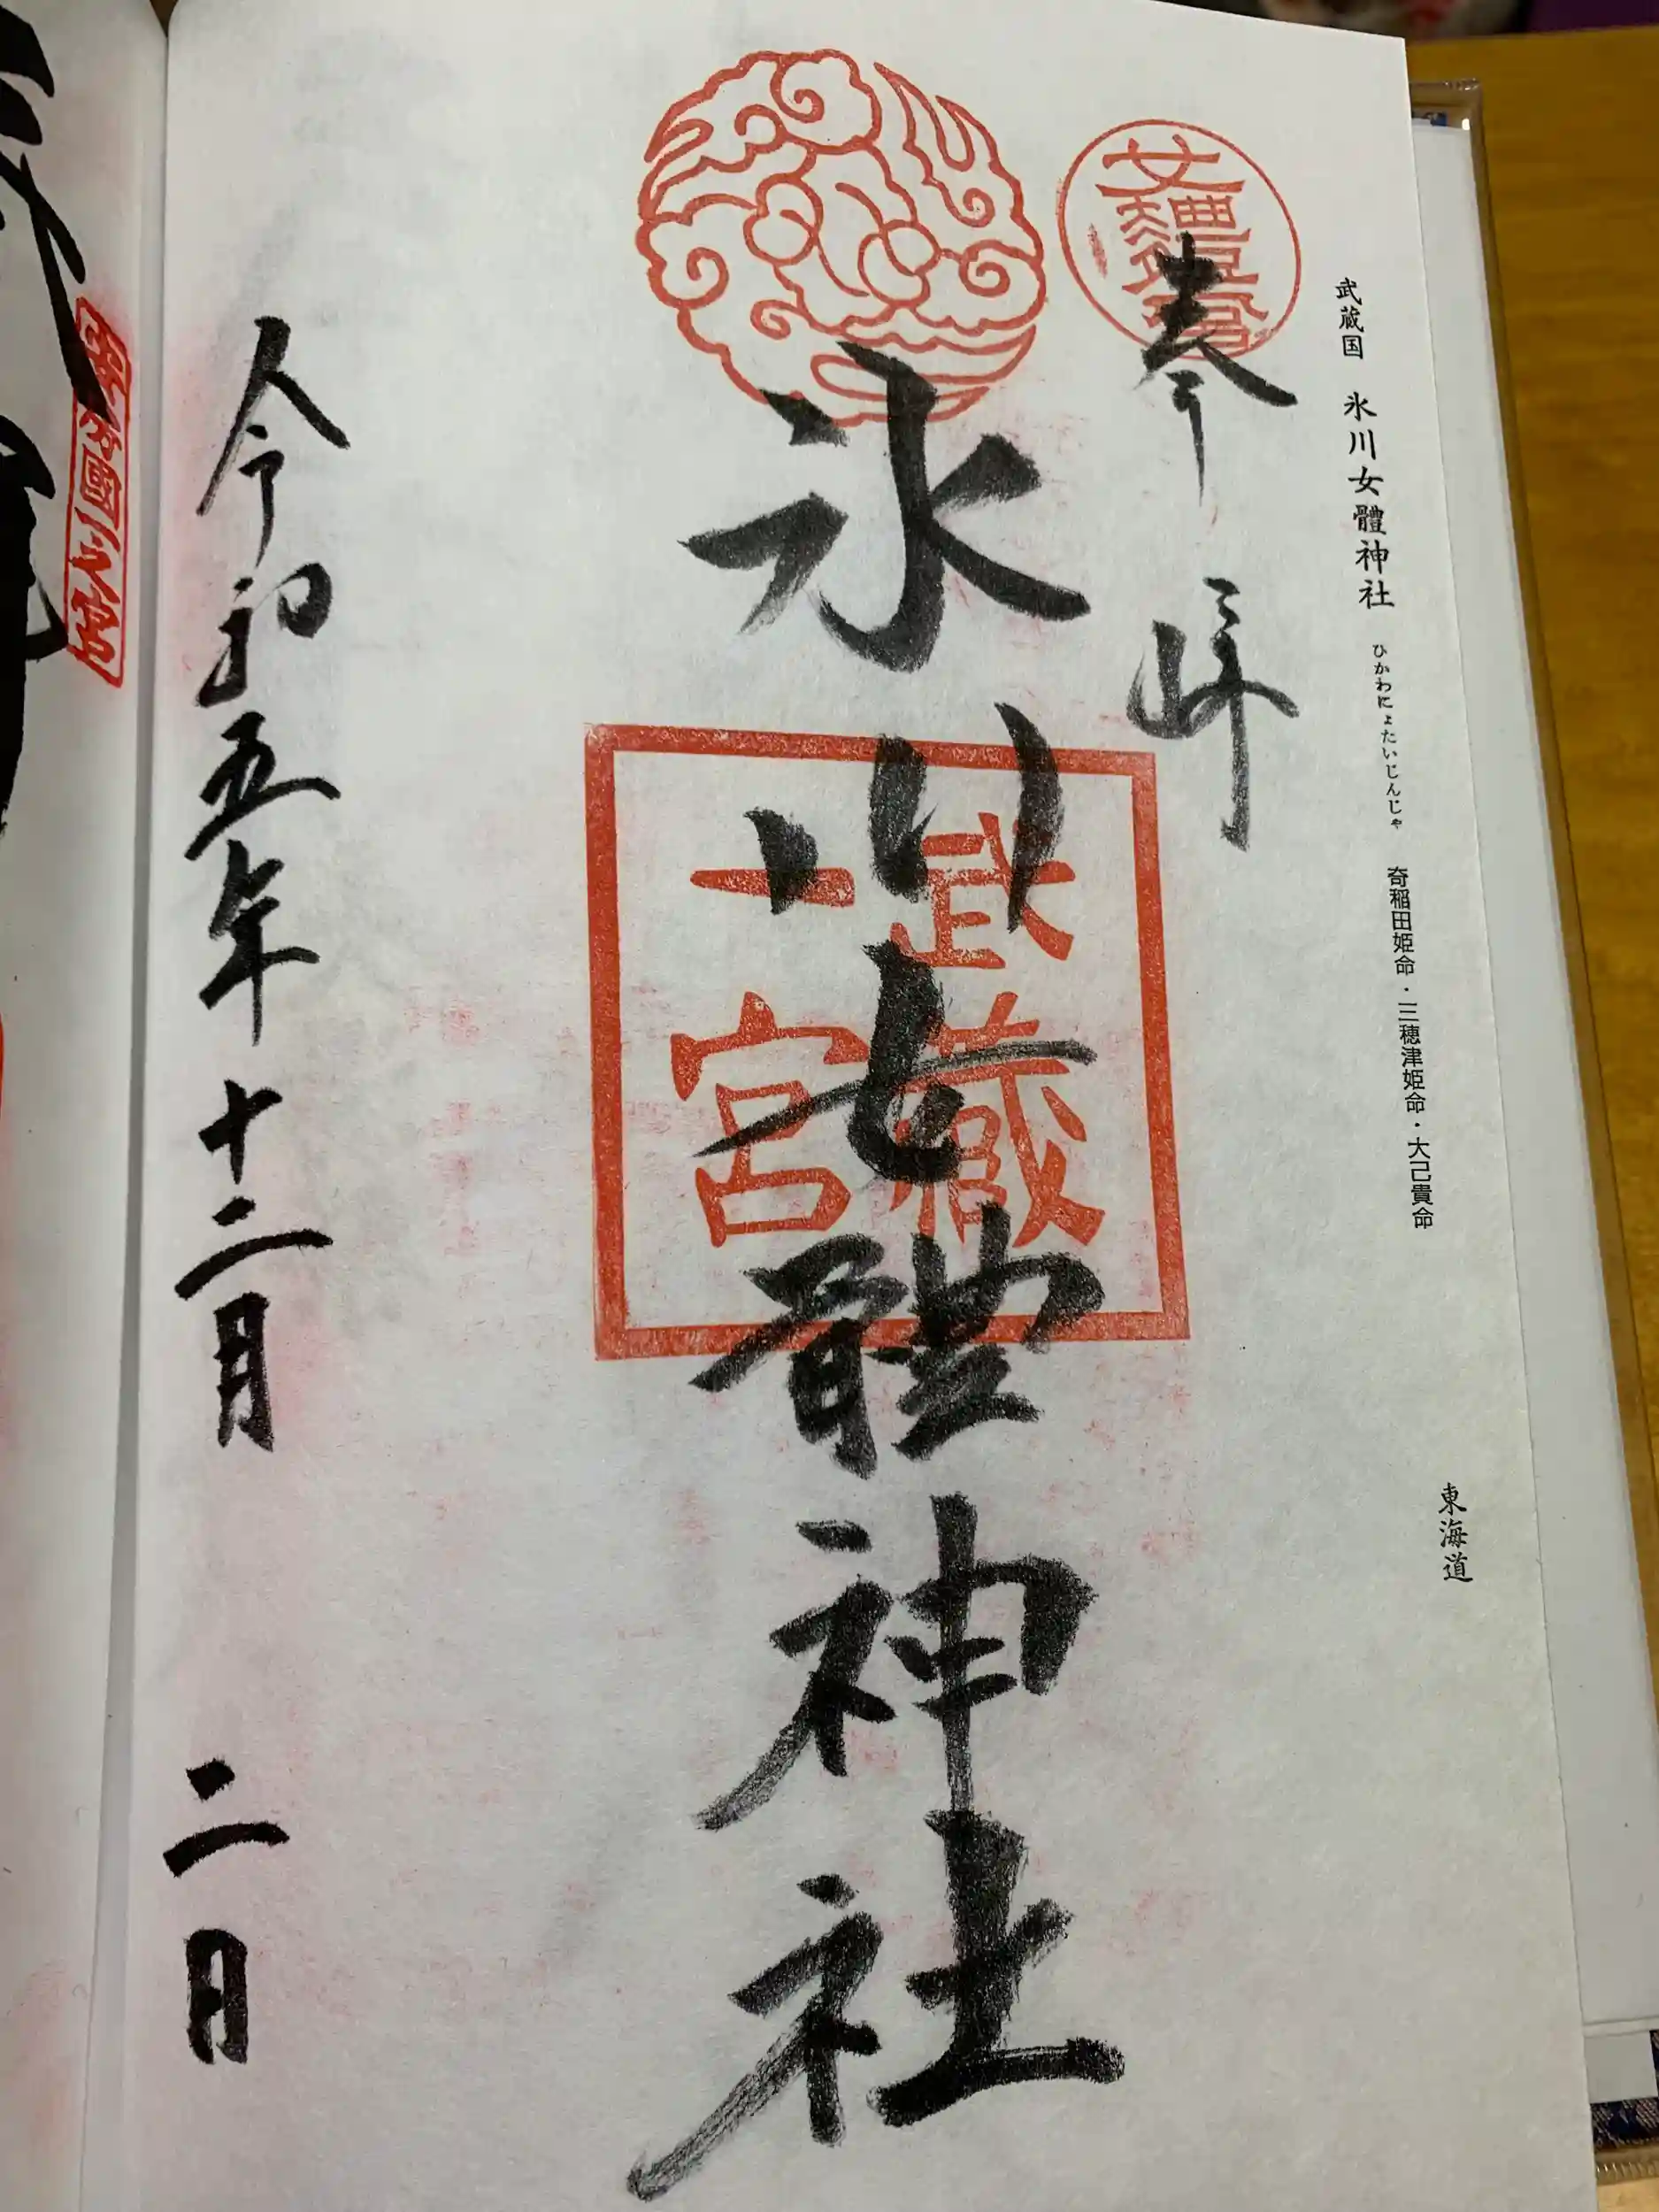 武蔵国 氷川女體神社 ひかわにょたいじんじゃ 奇稲田姫命・三穂津姫命・大己貴命 東海道
奉拝
武蔵
一宮
氷川女體神社
令和五年十二月 二日